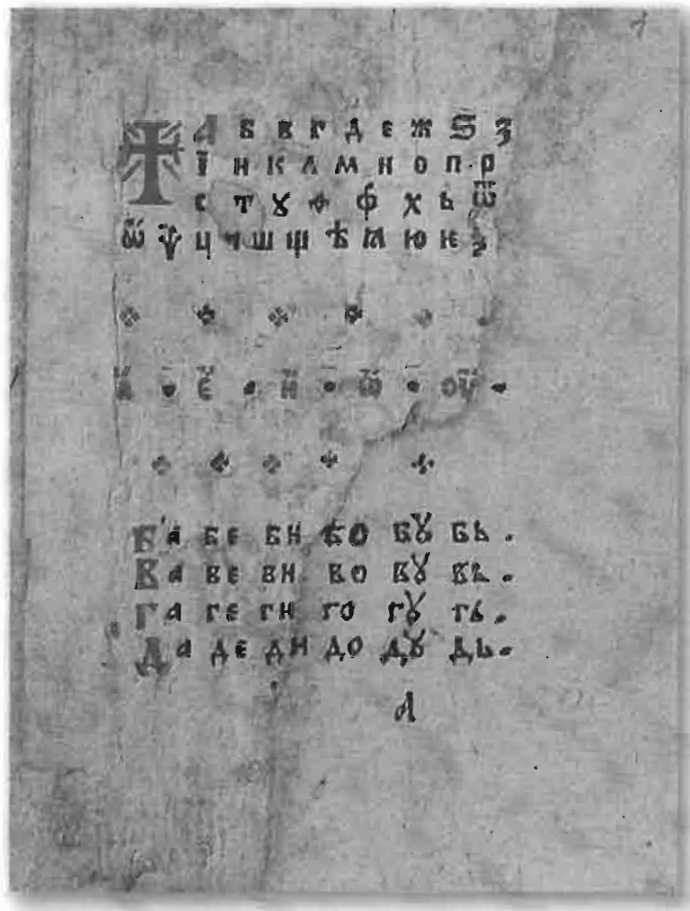 А Б В Г Д Е Ж Ѕ З
Ї И К Л М Н О П Р
С Т Ꙋ Ф Х Ь Ѿ
Ѿ Ѱ Ц Ч Ш Щ Ѣ Ꙗ Ю Ѥ Ѯ
А • Е • И • Ѡ • ОУ •
Ба бе би бо бꙋ бь.
Ва ве ви во вꙋ вь.
Га ге ги го гꙋ гь.
Да де ди до дꙋ дь.
А